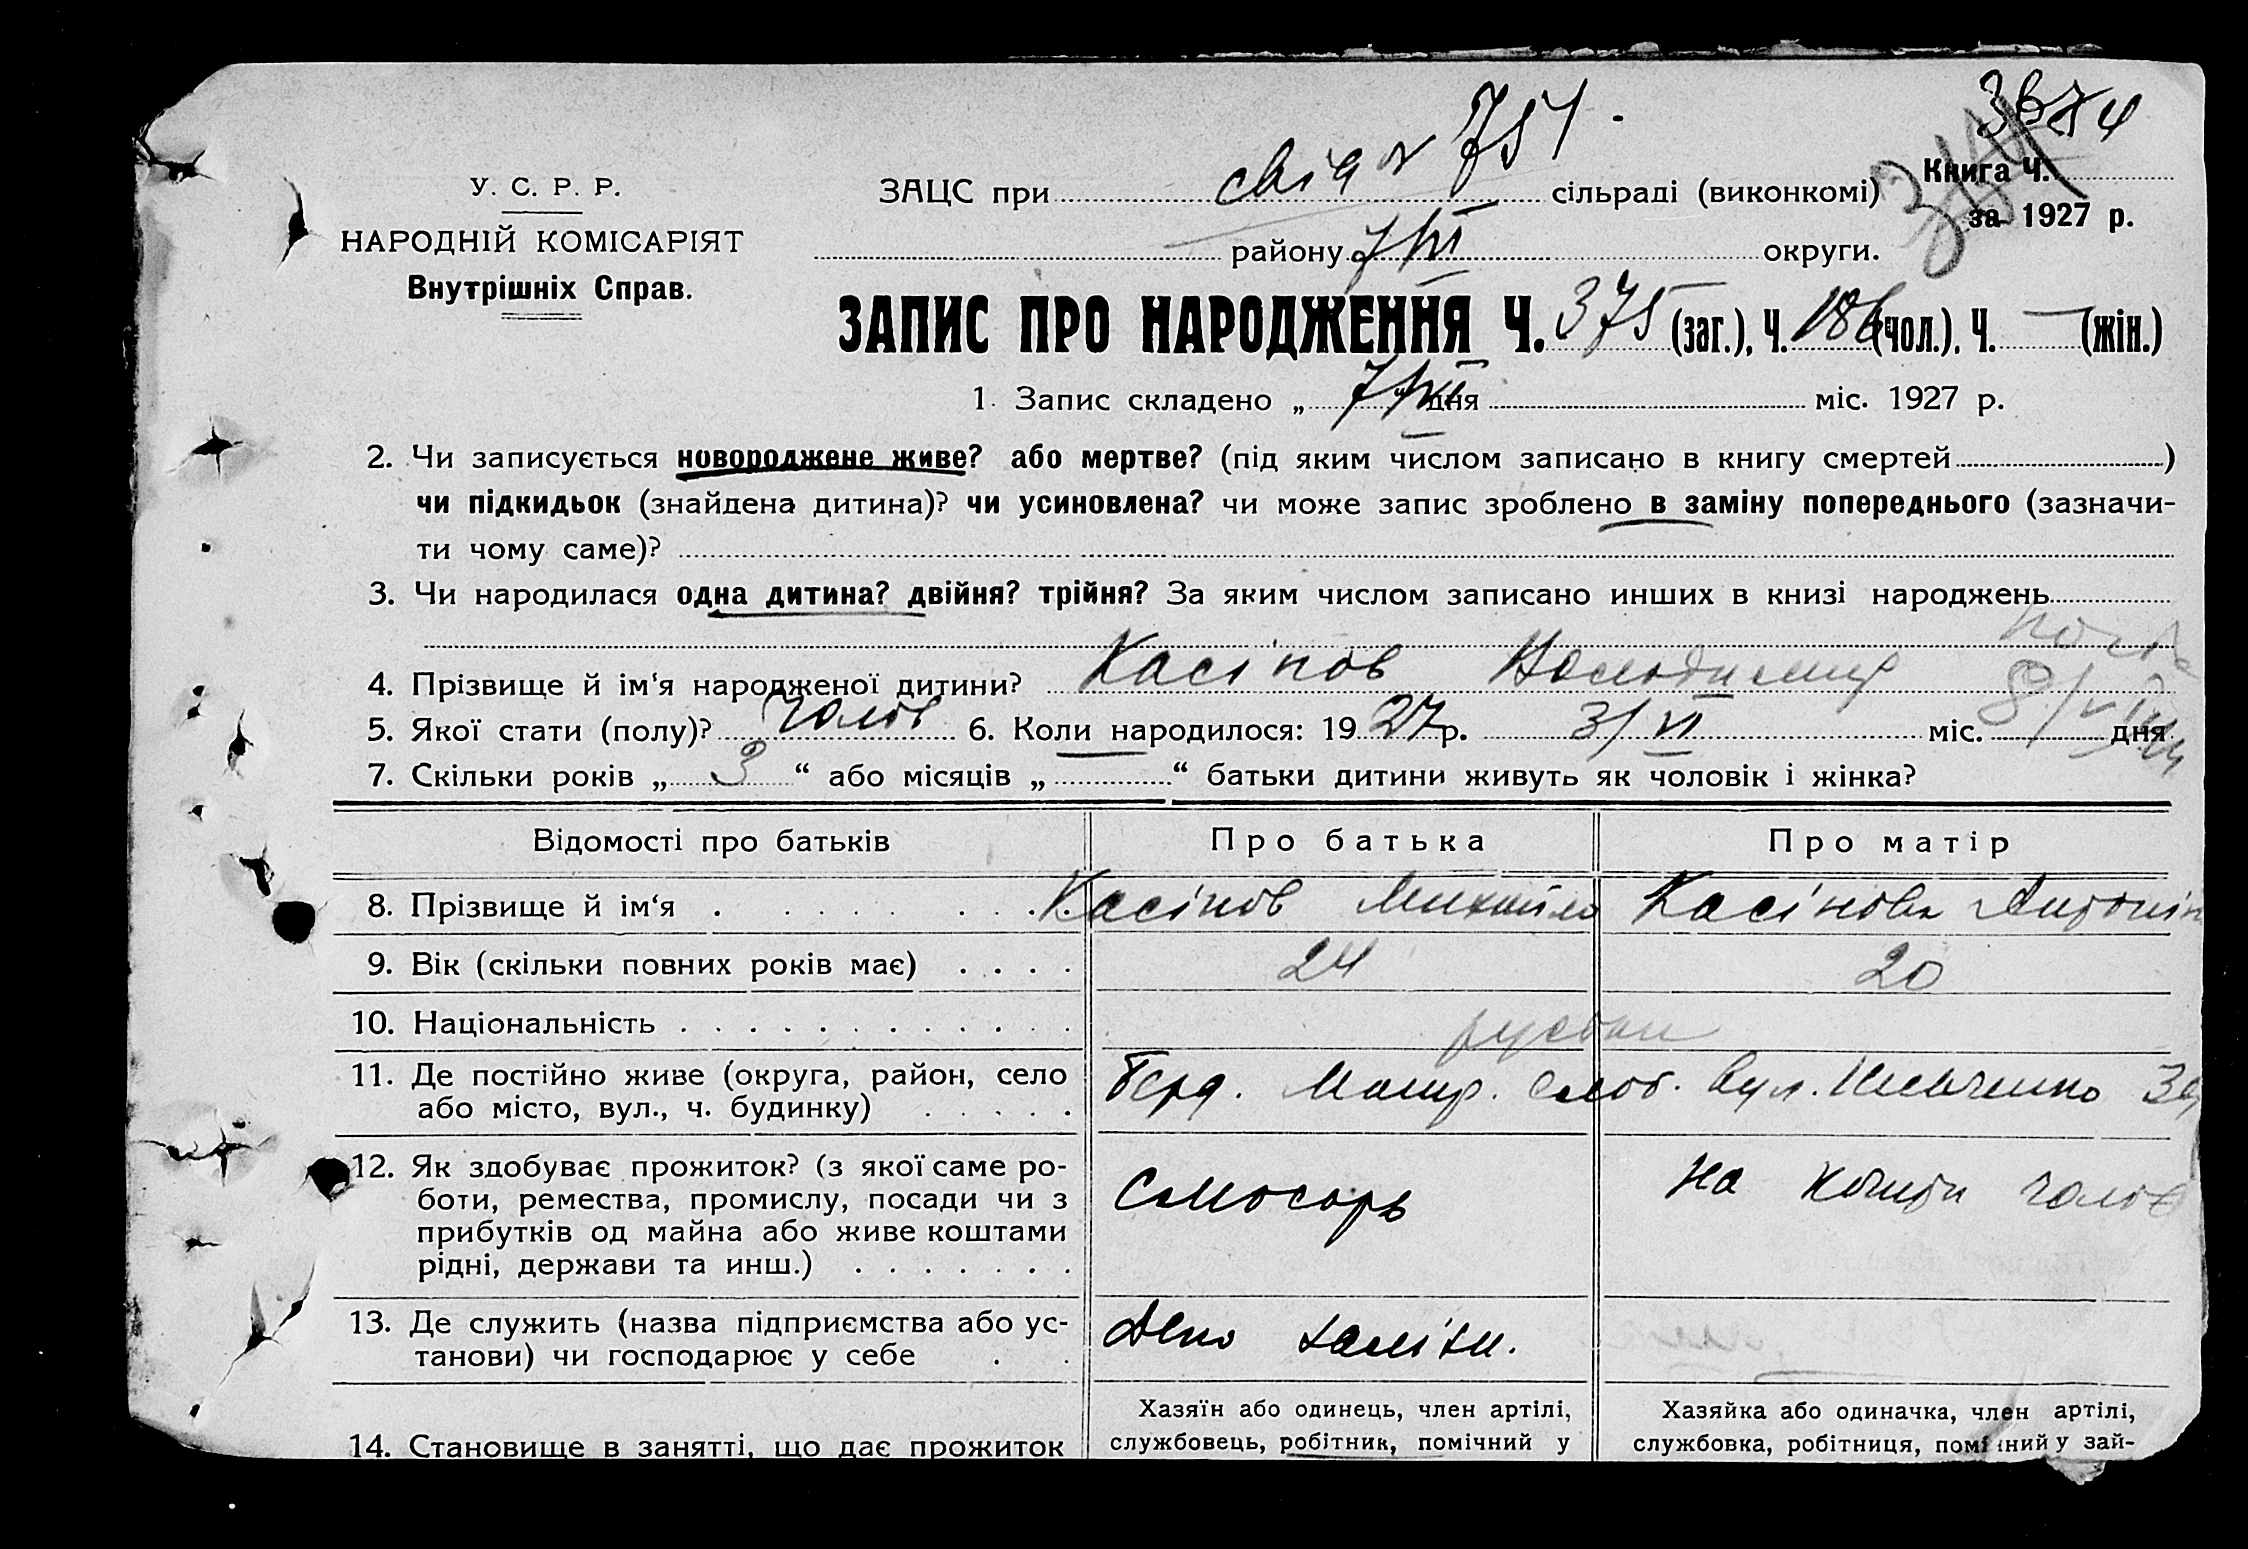 У. С. Р. Р.
НАРОДНІЙ КОМІСАРІЯТ
Внутрішніх Справ.
ЗАЦС при 751 сільраді (виконкомі)
Книга Ч.
за 1927 р.
району 7/VI округи.
ЗАПИС ПРО НАРОДЖЕННЯ Ч. 375 (заг.), Ч. 186 (чол.), Ч. — (жін.)
1. Запис складено „ 7/VI дня міс. 1927 р.
2. Чи записується новороджене живе? або мертве? (під яким числом записано в книгу смертей )
чи підкидьок (знайдена дитина)? чи усиновлена? чи може запис зроблено в заміну попереднього (зазначи-
ти чому саме)?
3. Чи народилася одна дитина? двійня? трійня? За яким числом записано инших в книзі народжень
4. Прізвище й ім'я народженої дитини? Касінов Володимир
5. Якої стати (полу)? чолов 6. Коли народилося: 1927 р. 3/VI міс. дня
7. Скільки років „ 3 “ або місяців „ “ батьки дитини живуть як чоловік і жінка?
Відомості про батьків Про батька Про матір
8. Прізвище й ім'я Касінов Михайло Касінова Антонін
9. Вік (скільки повних років має) 24 20
10. Національність руські
11. Де постійно живе (округа, район, село
або місто, вул., ч. будинку)
Берд. слоб. вул. Шевченко
12. Як здобуває прожиток? (з якої саме ро-
боти, ремества, промислу, посади чи з
прибутків од майна або живе коштами
рідні, держави та инш.)
Слюсарь На кошти чолов
13. Де служить (назва підприємства або ус-
танови) чи господарює у себе
Депо
14. Становище в занятті, що дає прожиток
Хазяїн або одинець, член артілі,
службовець, робітник, помічний у
Хазяйка або одиначка, член артілі,
службовка, робітниця, помічний у зай-